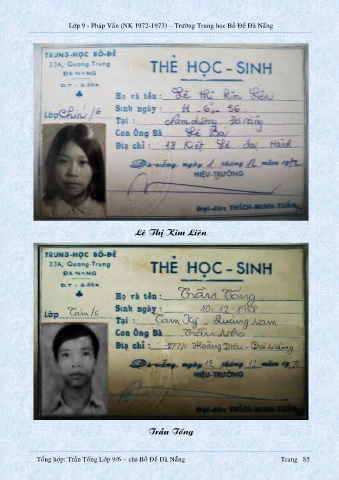 Lớp 9 - Pháp Văn (NK 1972-1973) – Trường Trung học Bồ Đề Đà Nẵng
TRUNG-HỌC BỒ-ĐỀ
33A, Quang-Trung
ĐÀ-NẴNG
Đ.T : 2.064
Lớp Chín/6
THẺ HỌC-SINH
Họ và tên: Lê Thị Kim Liên
Sinh ngày: 11-6-56
Tại : Đà nẵng
Con Ông Bà Lê Ba
Địa chỉ : 18 Kiệt Lê đại Hành
Đà-nẵng, ngày 1 tháng 12 năm 1972
HIỆU-TRƯỞNG
Đại-đức THÍCH-MINH-TUẤN
Lê Thị Kim Liên
TRUNG-HỌC BỒ-ĐỀ
33A, Quang-Trung
ĐÀ-NẴNG
Đ.T : 2.064
Lớp Tám/6
THẺ HỌC-SINH
Họ và tên: Trần Tống
Sinh ngày: 10-12-1958
Tại : Tam Kỳ - Quảng Nam
Con Ông Bà Trần Nho
Địa chỉ : 277/5 Hoàng Diệu - Đà Nẵng
Đà-nẵng, ngày 12 tháng 12 năm
HIỆU-TRƯỞNG
Đại-đức THÍCH-MINH-TUẤN
Trần Tống
Tổng hợp: Trần Tống Lớp 9/6 – chs Bồ Đề Đà Nẵng Trang 85